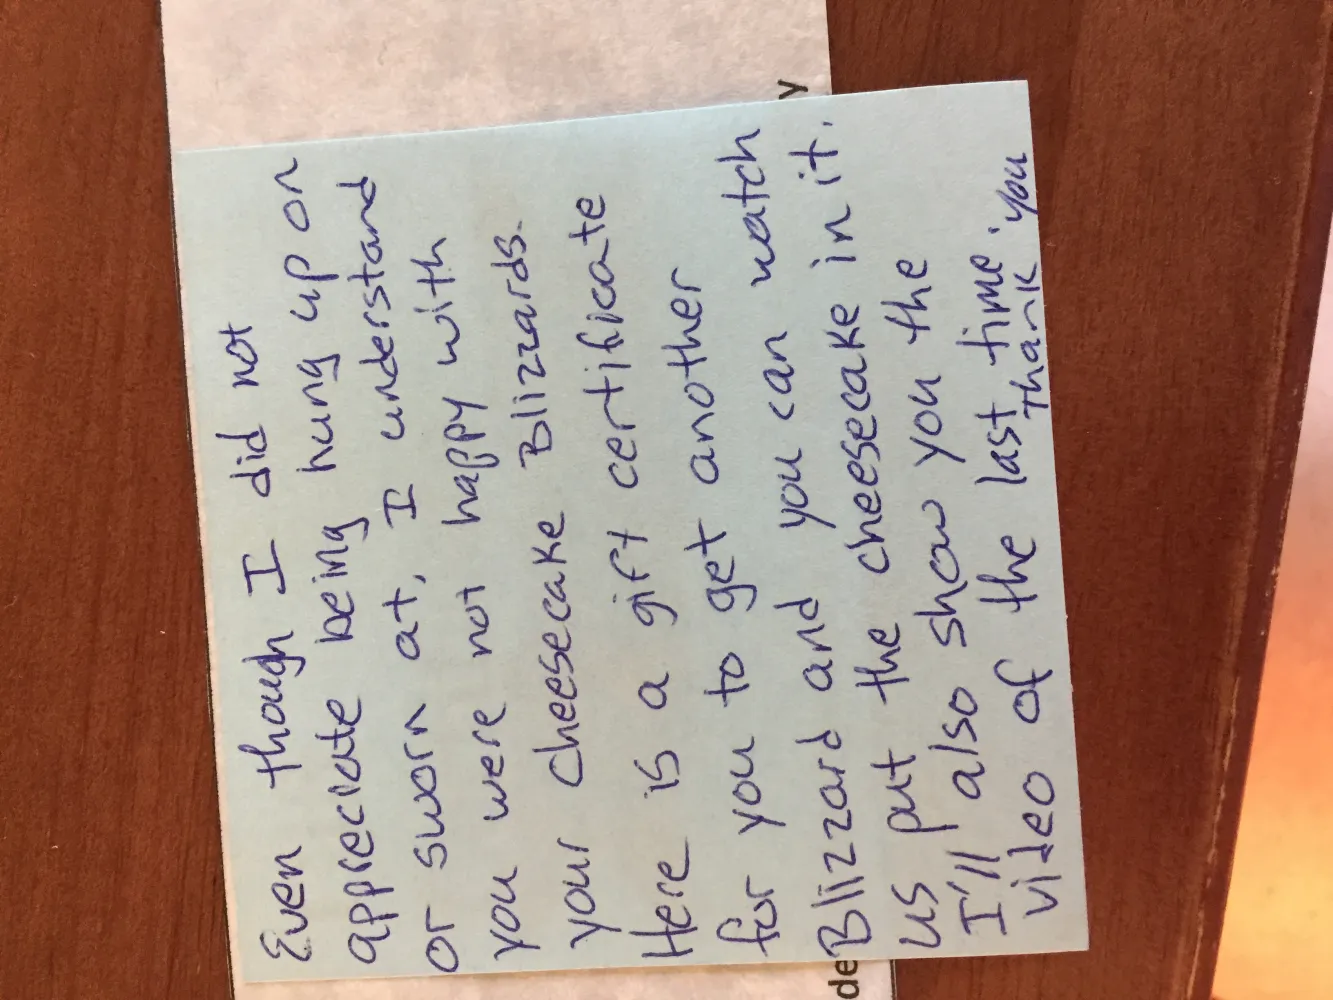 Even though I did not
appreciate being hung up on
or sworn at, I understand
you were not happy with
your cheesecake Blizzards.
Here is a gift certificate
for you to get another
Blizzard and you can watch
us put the cheesecake in it.
I'll also show you the
video of the last time.
Thank you
de
y